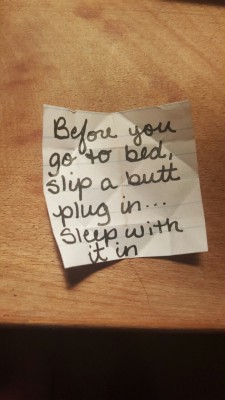 Before you
go to bed,
slip a butt
plug in...
Sleep with
it in